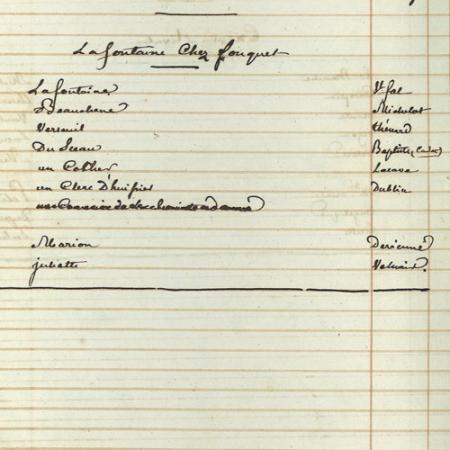 Lafontaine Chez fouquet
Lafontaine St fal
Beauchene Michelot
Verseuil thénard
Du Sceau Baptiste (Cadet)
un Cocher Lacave
un Clerc D'huissier Dublin
Marion
juliette